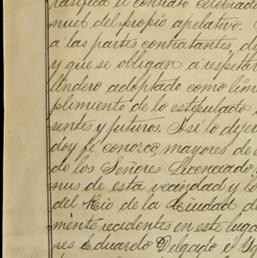 ratifica el contrato celebrado
nuel del propio apelativo.
a las partes contratantes, de
y que se obligan á respetar
lindero adoptado como lím
plimiento de lo estipulado
sentes y futuros. Así lo dijer
doy fé conozco, mayores de
do los Señores Licenciado
nus de esta vecindad y lo
del Rio de la Ciudad de
mente recidentes en este lugar
res Eduardo Delgado é Yg